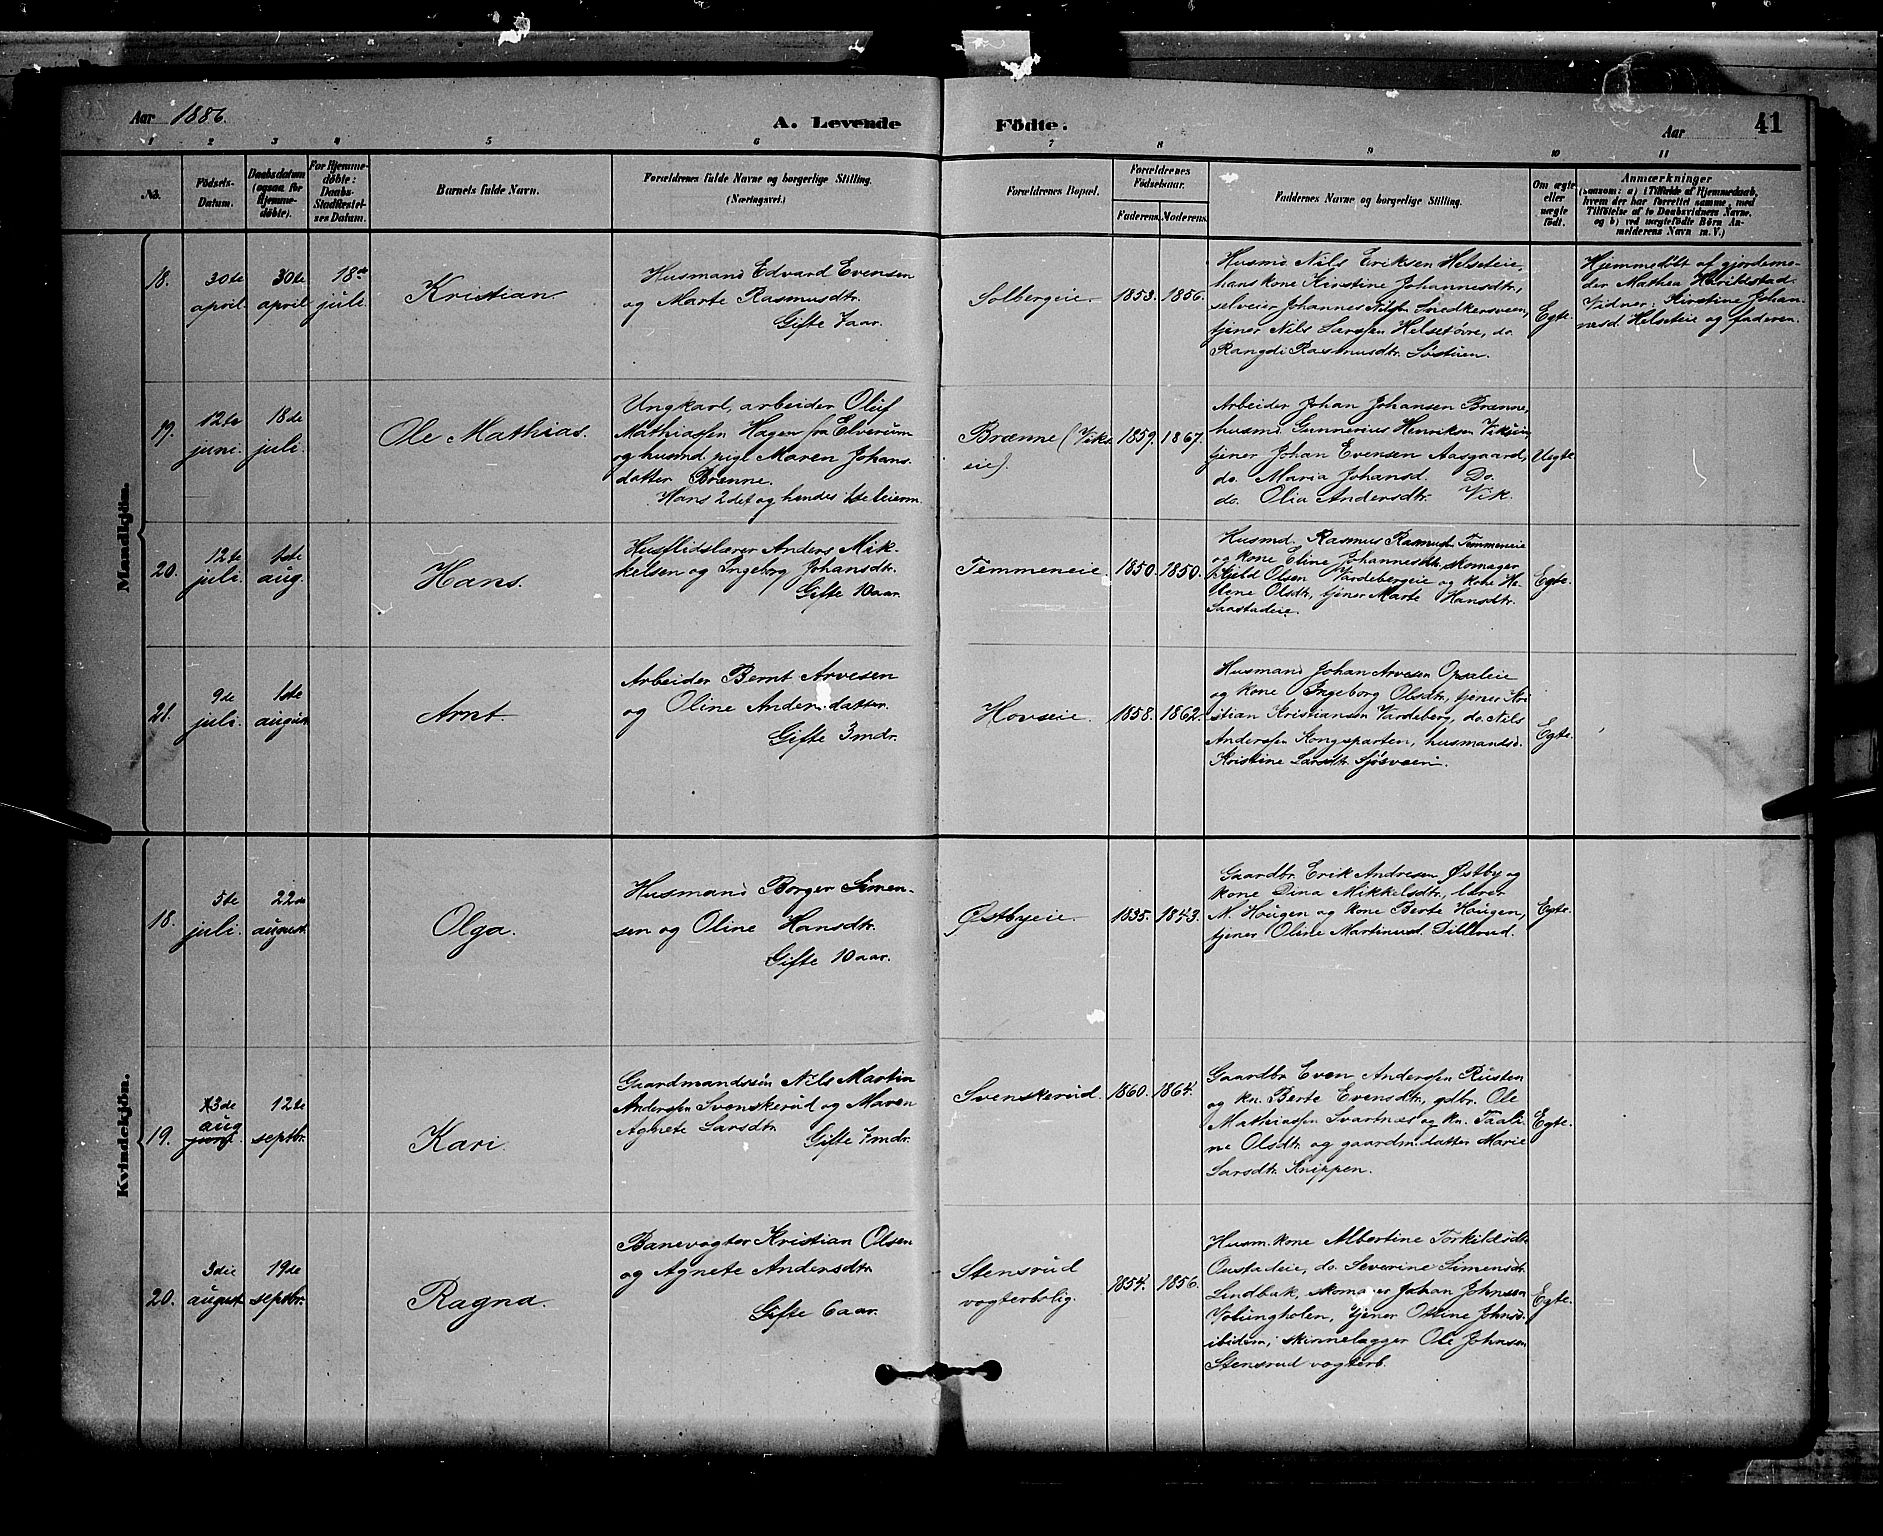 Aar 1886.
A. Levende Födte.
Aar
41
1 2 3 4 5 6 7 8 9 10 11
No.
Födsels-
Datum.
Daabsdatum
(ogsaa for
Hjemme-
döbte).
For Hjemme-
döbte:
Daabs-
Stadfæstel-
ses Datum.
Barnets fulde Navn.
Forældrenes fulde Navne og borgerlige Stilling.
(Næringsvei.)
Forældrenes Bopæl.
Forældrenes
Födselsaar.
Faderens. Moderens.
Faddernes Navne og borgerlige Stilling.
Om ægte
eller
uægte
födt.
Anmærkninger
(saasom: a) i Tilfælde af Hjemmedaab,
hvem der har forrettet samme, med
Tilföielse af to Daabsvidners Navne,
og b) ved uægtefödte Börn An-
melderens Navn m. V.)
Mandkjön.
18.
30te
april.
30te
april
18de
juli.
Kristian
Husmand Edvard Evensen
og Marte Rasmusdtr.
Gifte 7 aar.
Solbergeie.
1853. 1856.
Husmd Nils Eriksen Helseteie,
hans kone Kirstine Johannesdtr,
selveier Johannes Nilsen Snedkersveen,
tjener Nils Larssen Helsetøvre, do.
Rangdi Rasmusdtr. Søstuen.
Egte.
Hjemmedøbt af gjordemo-
der Mathea
Vidner: Kirstine Johan-
nesd. Helseteie og faderen.
19.
12te
juni.
18de
juli.
Ole Mathias.
Ungkarl, arbeider Oluf
Mathiassen Hagen fra Elverum
og husmd. pige Maren Johans-
datter Brænne.
Hans 2det og hendes 1ste leierm.
Brænne (Viks-
eie).
1859. 1867.
Arbeider Johan Johansen Brænne,
husmd Gunnerius Henriksen Vikseie,
tjener Johan Evensen Aasgaard,
do. Maria Johansd. Do.
do. Olia Andersdtr. Vik.
Uegte
20.
12te
juli.
1ste
aug.
Hans.
Husflidslærer Anders Mik-
kelsen og Ingeborg Johansdtr.
Gifte 10 aar.
Temmeneie.
1850. 1850.
Husmd. Rasmus Rasmusen Temmeneie
og kone Eline Johannesdtr, skomager
Kjeld Olsen Vardebergeie og kone He-
lene Olsdtr, tjener Marte Hansdtr.
Saastadeie.
Egte.
21.
9de
juli.
1ste
august
Arnt.
Arbeider Bernt Arvesen
og Oline Andersdatter.
Gifte 3 mdr.
Hovseie.
1858. 1862.
Husmand Johan Arvesen Opsaleie
og kone Ingeborg Olsdtr, tjener Kri-
stian Kristiansen Vardeberg, do. Nils
Anderssen Kongsparten, husmandsd.
Kristine Larsdtr. Sjøsveen.
Egte.
Kvindekjön.
18.
5te
juli.
22de
august.
Olga.
Husmand Borger Simen-
sen og Oline Hansdtr.
Gifte 10 aar.
Østbyeie.
1835. 1843.
Gaardbr. Erik Andresen Østby og
kone Dina Mikkelsdtr, lærer
N. Haugen og kone Berte Haugen,
tjener Oline Martinusd. Dillerud.
Egte.
19.
3de
aug
12te
septbr.
Kari.
Gaardmandssøn Nils Martin
Anderssen Svenskerud og Maren
Agnete Larsdtr. Gifte 7 mdr.
Svenskerud.
1860. 1864.
Gaardbr Even Anderssen Rusten
og kn. Berte Evensdtr, gdbr. Ole
Mathiassen Svartnæs og kn. Taali-
ne Olsdtr. og gaardm. datter Marie
Larsdtr. Knippen.
Egte.
20.
3die
august
19de
septbr.
Ragna.
Banevogter Kristian Olsen
og Agnete Andersdtr.
Gifte 6 aar.
Stensrud
vogterbolig.
1854. 1856.
Husm. kone Albertine Torkildsdtr
Oustadeie, do. Severine Simensdtr.
Lindbak, skomager Johan Johnsen
tjener Oline Johnsd.
ibidem, skinnelægger Ole Johnsen
Stensrud vogterb.
Egte.